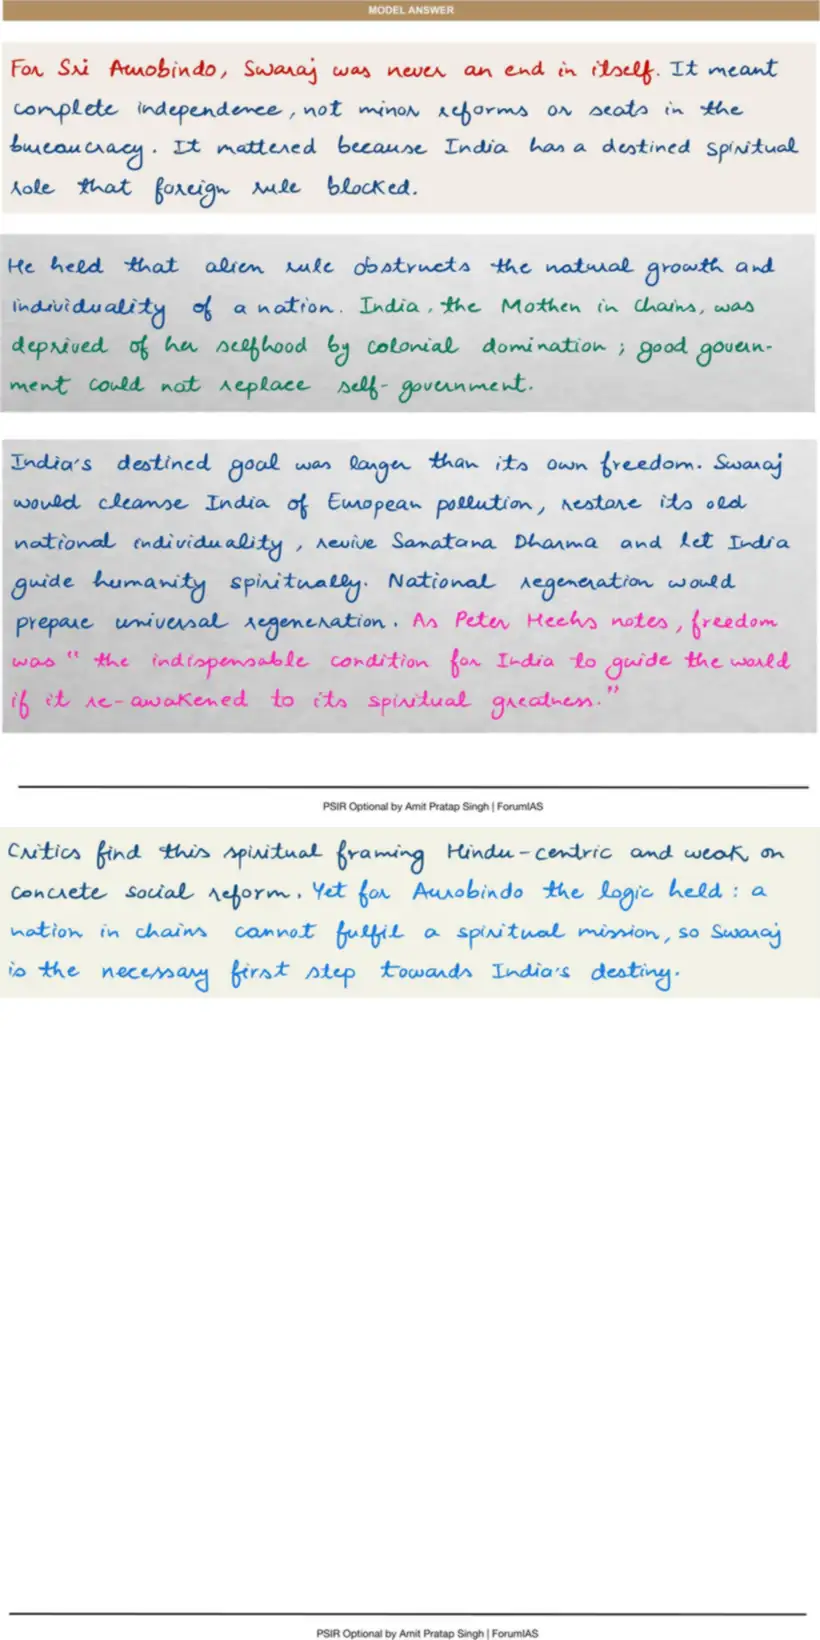 MODEL ANSWER
For Sri Aurobindo, Swaraj was never an end in itself. It meant
complete independence, not minor reforms or seats in the
bureaucracy. It mattered because India has a destined spiritual
role that foreign rule blocked.
He held that alien rule obstructs the natural growth and
individuality of a nation. India, the Mother in chains, was
deprived of her selfhood by colonial domination; good govern-
ment could not replace self-government.
India's destined goal was larger than its own freedom. Swaraj
would cleanse India of European pollution, restore its old
national individuality, revive Sanatana Dharma and let India
guide humanity spiritually. National regeneration would
prepare universal regeneration. As Peter Heehs notes, freedom
was "the indispensable condition for India to guide the world
if it re-awakened to its spiritual greatness."
PSIR Optional by Amit Pratap Singh | ForumIAS
Critics find this spiritual framing Hindu-centric and weak on
concrete social reform. Yet for Aurobindo the logic held: a
nation in chains cannot fulfil a spiritual mission, so Swaraj
is the necessary first step towards India's destiny.
PSIR Optional by Amit Pratap Singh | ForumIAS